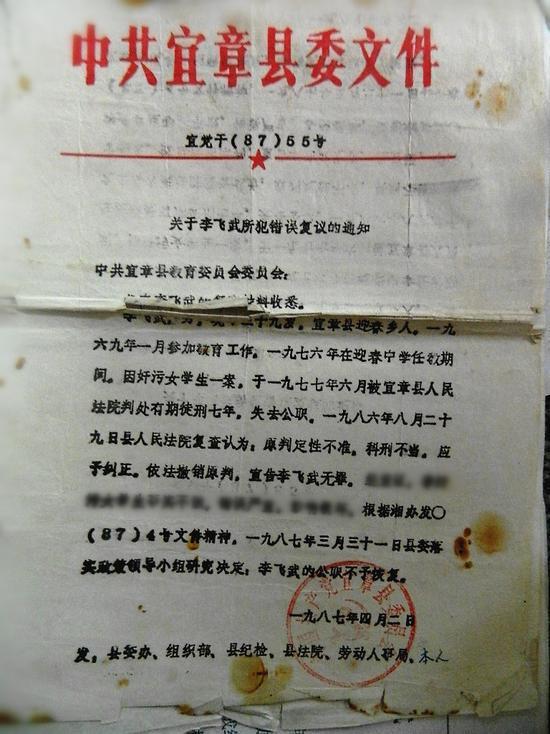 中共宜章县委文件
宜党干(87)55号
关于李飞武所犯错误复议的通知
中共宜章县教育委员会委员会:
李飞武的 材料收悉。
李飞武,男,现 二十九岁,宜章县迎春乡人。一九
六九年一月参加教育工作。一九七六年在迎春中学任教期
间。因奸污女学生一案,于一九七七年六月被宜章县人民
法院判处有期徒刑七年。失去公职。一九八六年八月二十
九日县人民法院复查认为:原判定性不准。科刑不当。应
予纠正。依法撤销原判,宣告李飞武无罪。
根据湘办发〇
(87)4号文件精神,一九八七年三月三十一日县委落
实政策领导小组研究决定:李飞武的公职不予恢复。
一九八七年四月二日
发:县委办、组织部、县纪检、县法院、劳动人事局、本人